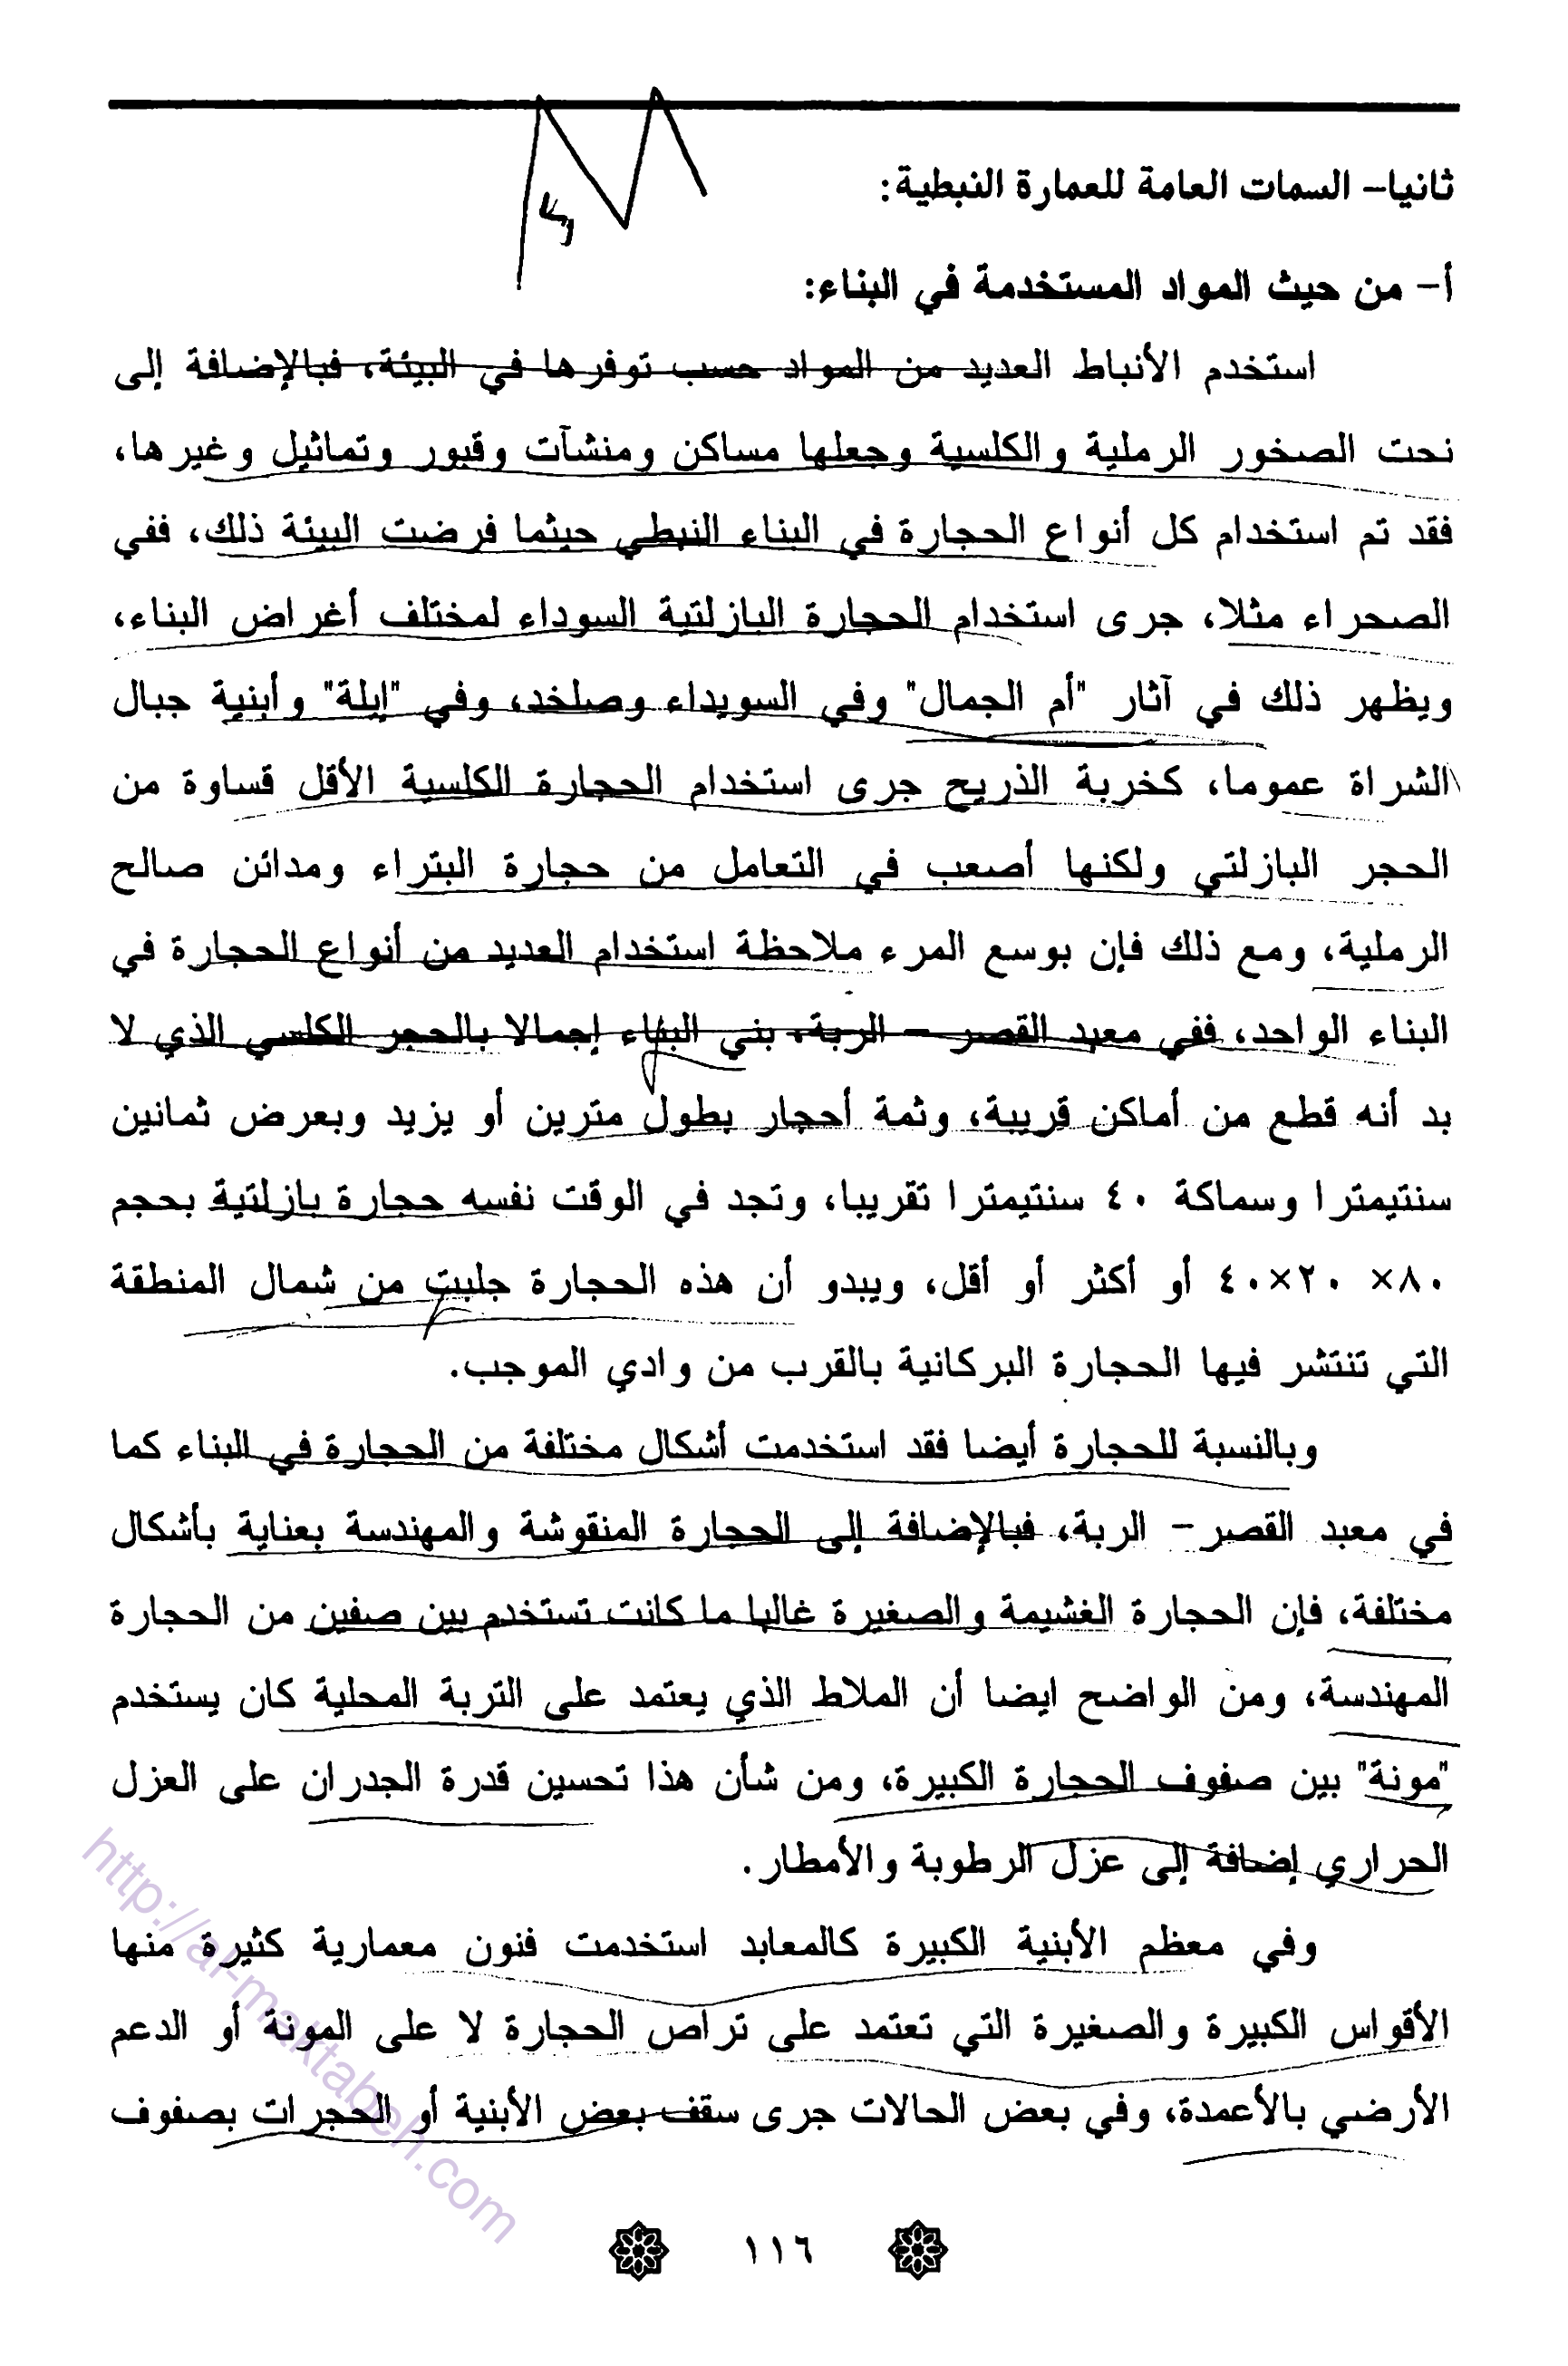 ثانيا- السمات العامة للعمارة النبطية:
أ- من حيث المواد المستخدمة في البناء:
استخدم الأنباط العديد من المواد حسب توفرها في البيئة، فبالإضافة إلى
نحت الصخور الرملية والكلسية وجعلها مساكن ومنشآت وقبور وتماثيل وغيرها،
فقد تم استخدام كل أنواع الحجارة في البناء النبطي حيثما فرضت البيئة ذلك، ففي
الصحراء مثلا، جرى استخدام الحجارة البازلتية السوداء لمختلف أغراض البناء،
ويظهر ذلك في آثار "أم الجمال" وفي السويداء وصلخد، وفي "إيلة" وأبنية جبال
الشراة عموما، كخربة الذريح جرى استخدام الحجارة الكلسية الأقل قساوة من
الحجر البازلتي ولكنها أصعب في التعامل من حجارة البتراء ومدائن صالح
الرملية، ومع ذلك فإن بوسع المرء ملاحظة استخدام العديد من أنواع الحجارة في
البناء الواحد، ففي معبد القصر - الربة، بني البناء إجمالا بالحجر الكلسي الذي لا
بد أنه قطع من أماكن قريبة، وثمة أحجار بطول مترين أو يزيد وبعرض ثمانين
سنتيمترا وسماكة ٤٠ سنتيمترا تقريبا، وتجد في الوقت نفسه حجارة بازلتية بحجم
٨٠× ٢٠×٤٠ أو أكثر أو أقل، ويبدو أن هذه الحجارة جلبت من شمال المنطقة
التي تنتشر فيها الحجارة البركانية بالقرب من وادي الموجب.
وبالنسبة للحجارة أيضا فقد استخدمت أشكال مختلفة من الحجارة في البناء كما
في معبد القصر- الربة، فبالإضافة إلى الحجارة المنقوشة والمهندسة بعناية بأشكال
مختلفة، فإن الحجارة الغشيمة والصغيرة غالبا ما كانت تستخدم بين صفين من الحجارة
المهندسة، ومن الواضح ايضا أن الملاط الذي يعتمد على التربة المحلية كان يستخدم
"مونة" بين صفوف الحجارة الكبيرة، ومن شأن هذا تحسين قدرة الجدران على العزل
الحراري إضافة إلى عزل الرطوبة والأمطار.
وفي معظم الأبنية الكبيرة كالمعابد استخدمت فنون معمارية كثيرة منها
الأقواس الكبيرة والصغيرة التي تعتمد على تراص الحجارة لا على المونة أو الدعم
الأرضي بالأعمدة، وفي بعض الحالات جرى سقف بعض الأبنية أو الحجرات بصفوف
١١٦
http://al-maktabeh.com